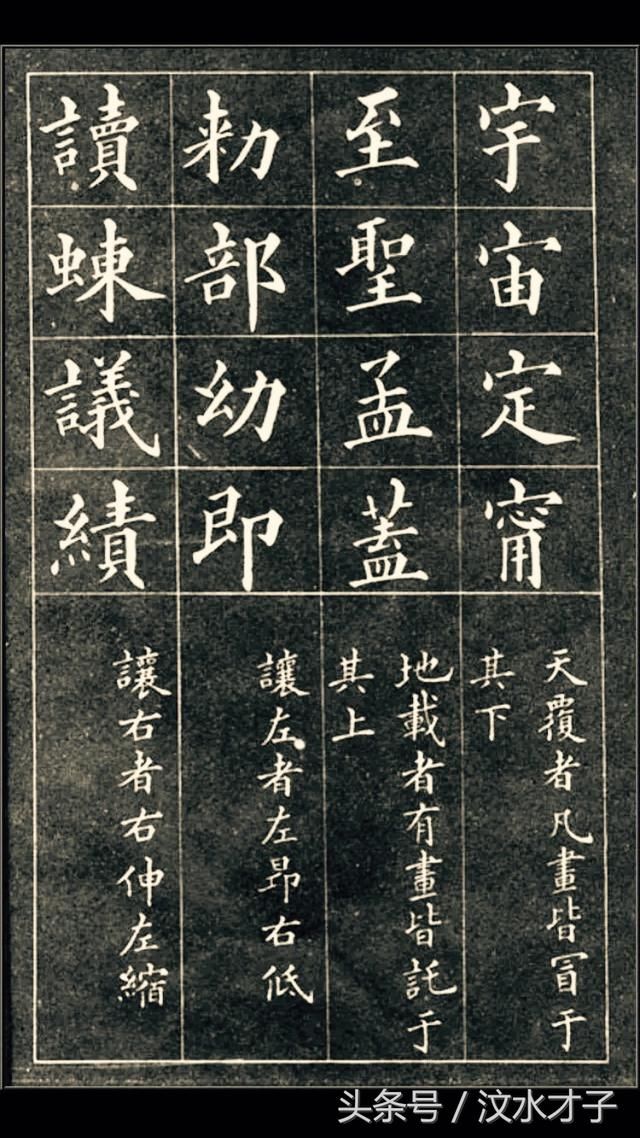 宇宙定甯
天覆者凡畫皆冒于
其下
至聖孟蓋
地載者有畫皆託于
其上
勑部幼即
讓左者左昂右低
讀蝀議績
讓右者右伸左縮
头条号 / 汶水才子